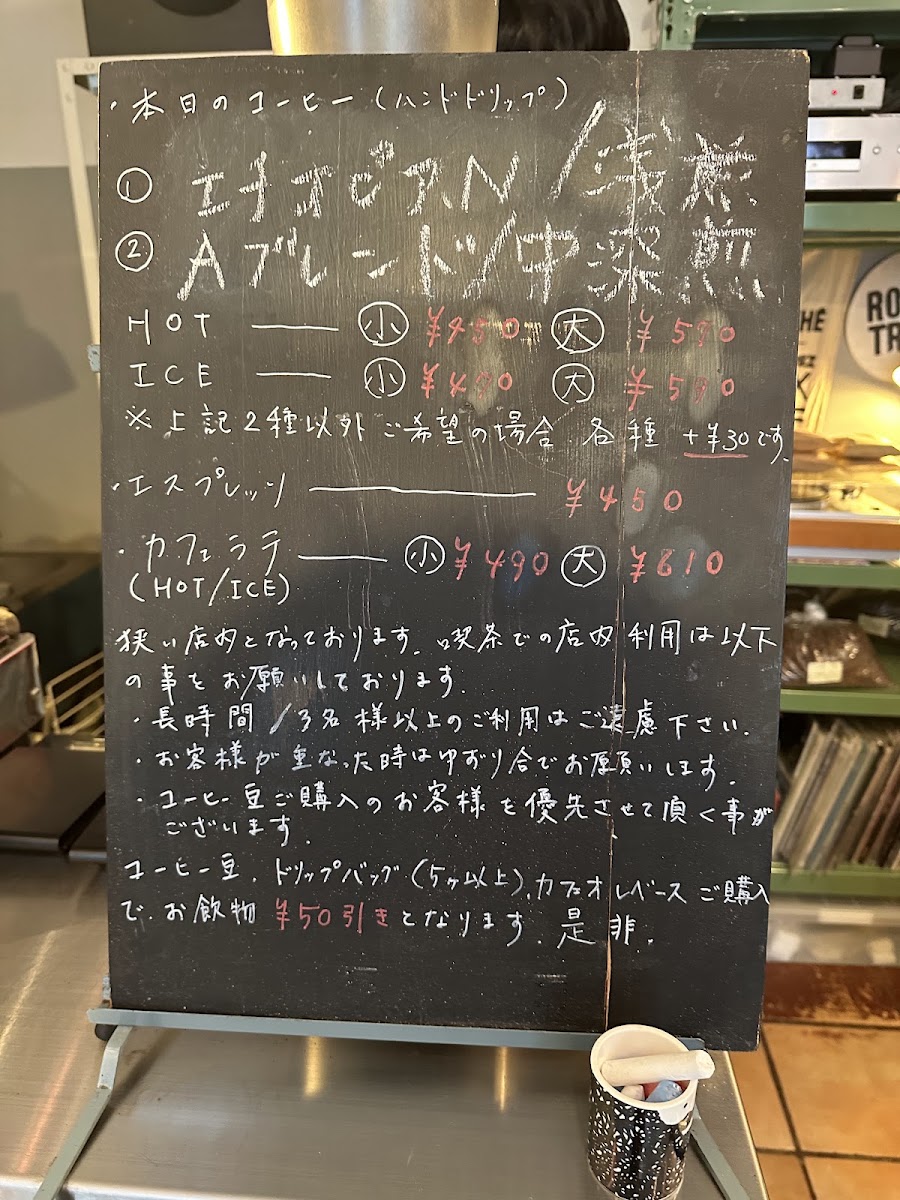 ・本日のコーヒー(ハンドドリップ)
① エチオピアN/浅煎
② Aブレンド/中深煎
HOT — 小 ¥450 大 ¥570
ICE — 小 大
※上記2種以外ご希望の場合 各種 +¥30です。
・エスプレッソ — ¥450
・カフェラテ — 小 ¥490 大 ¥610
(HOT/ICE)
狭い店内となっております。喫茶での店内利用は以下
の事をお願いしております。
・長時間/3名様以上のご利用はご遠慮下さい。
・お客様が重なった時はゆずり合でお願いします。
・コーヒー豆ご購入のお客様を優先させて頂く事が
ございます。
コーヒー豆、ドリップバッグ(5ヶ以上)、カフェオレベースご購入
で、お飲物 ¥50引きとなります。是非。
RO
TR